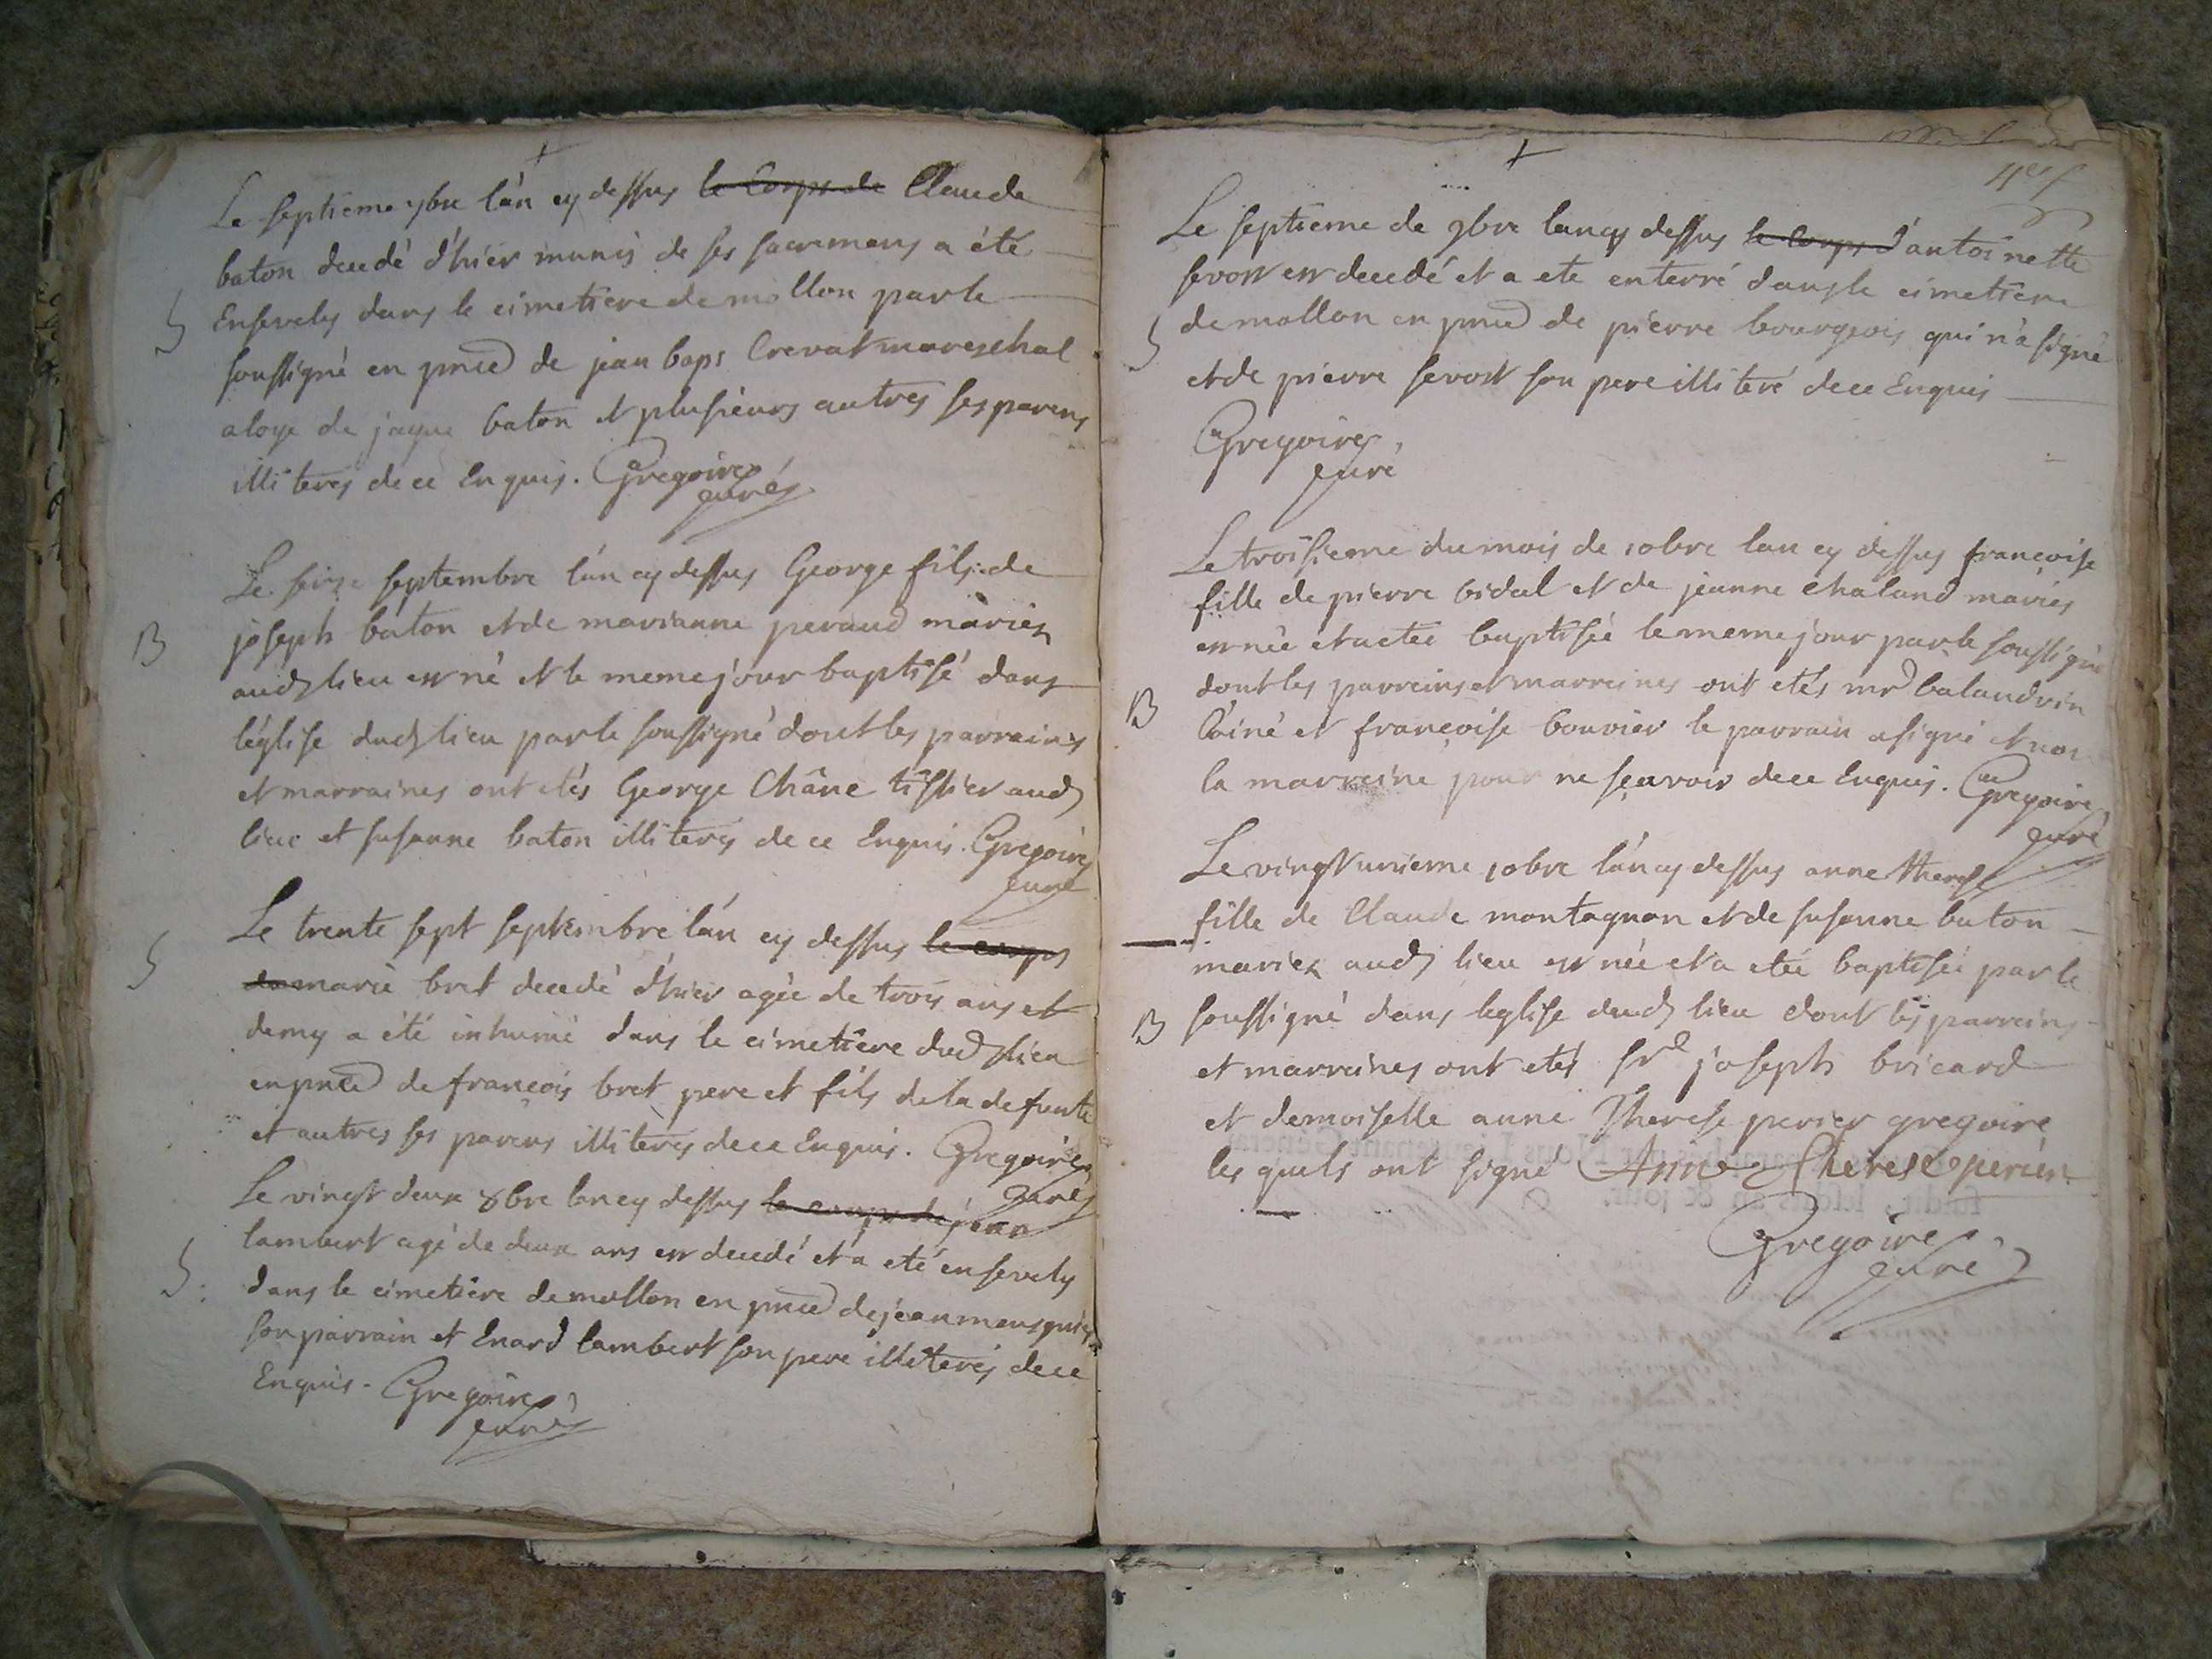 Le septieme 7bre l'an cy dessus le Corps de Claude
baton decedé d'hier munis de ses sacremens a été
S Ensevely dans le cimetiere de mollon par le
soussigné en pnce de jean baps Crevat mareschal
a loye de jaque baton et plusieurs autres ses parens
illiterés de ce Enquis. Gregoire
curé
Le seize septembre l'an cy dessus George fils de
B joseph baton et de marianne peraud mariez
aud lieu est né et le meme jour baptisé dans
l'église dud lieu par le soussigné dont les parrains
et marraines ont etés George Châne tissier aud
lieu et susanne baton illiterés de ce Enquis. Gregoire
curé
Le trente sept septembre l'an cy dessus le corps
S de marie bret decedé d'hier agée de trois ans et
demy a été inhumé dans le cimetiere dud lieu
en pnce de françois bret pere et fils de la defunte
et autres ses parens illiterés de ce Enquis. Gregoire
curé
Le vingt deux 8bre lan cy dessus le corps de jean
S. lambert agé de deux ans est decedé et a eté ensevely
dans le cimetiere de mollon en pnce de jean
son parrain et Enard lambert son pere illiterés de ce
Enquis. Gregoire
curé
Le septieme de 9bre lan cy dessus le corps d'antoinette
sevost est decedé et a ete enterré dans le cimetiere
S de mollon en pnce de pierre bourgeois qui n'a signé
et de pierre sevost son pere illiteré de ce Enquis
Gregoire
curé
Le troisieme du mois de 10bre lan cy dessus francoise
fille de pierre vidal et de jeanne chaland mariés
est née et a etée baptisée le meme jour par le soussigné
B dont les parreins et marreines ont etés mr balandrin
l'ainé et françoise bouvier le parrain a signé et non
la marreine pour ne sçavoir de ce Enquis. Gregoire
curé
Le vingt unieme 10bre l'an cy dessus anne therese
fille de Claude montagnon et de susanne baton
mariez aud lieu est née et a etée baptisée par le
B soussigné dans leglise dud lieu dont les parreins
et marreines ont etés sr joseph bricard
et demoiselle anne Therese perier gregoire
les quels ont signé Anne Therese perier
Gregoire
curé